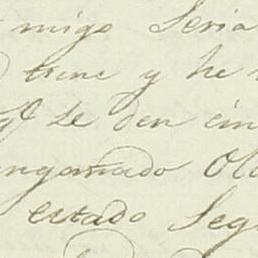 migo Seria
tiene y he
qe. le den cin
engañado Ola
estado Seg